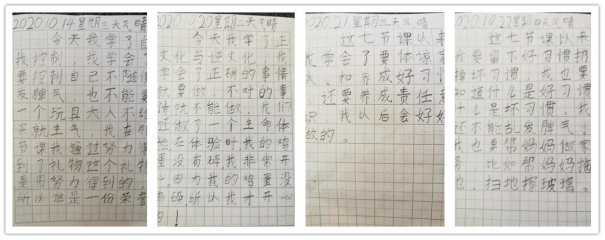 2020.10.14星期三天气晴
今天我学了自
我控制，我学会了
要控制自己不随便
发脾气，也不能要
一个玩具大人不给
买就生气，我在那
节课我通过努力得
到了礼物这个礼物
是用努力得到的，
所以这是一份荣誉
2020.10.20星期二天气晴
今天我学了正
文化与逆文化，我
学会了正确的事情
就要做，不对的事
情就不能做，我们
还做了一个生命体
验在体验时我的鸡
蛋没有碎我非常开
心，因为我的鸡蛋没
有碎所以我才开心
的！
2020.10.21星期三天气晴
这七节课以来
我学会了要体谅家
人，和养成好习惯
，还要养成责任意
识，我以后会好好
做的。
2020.10.22星期四天气晴
这七节课以来
我要留下好习惯扔
掉坏习惯，我也要
知道什么是好习惯
什么是坏习惯，我
还不能乱发脾气，
我也要帮妈妈做家
务，比如帮妈妈拖
地，扫地擦玻璃。